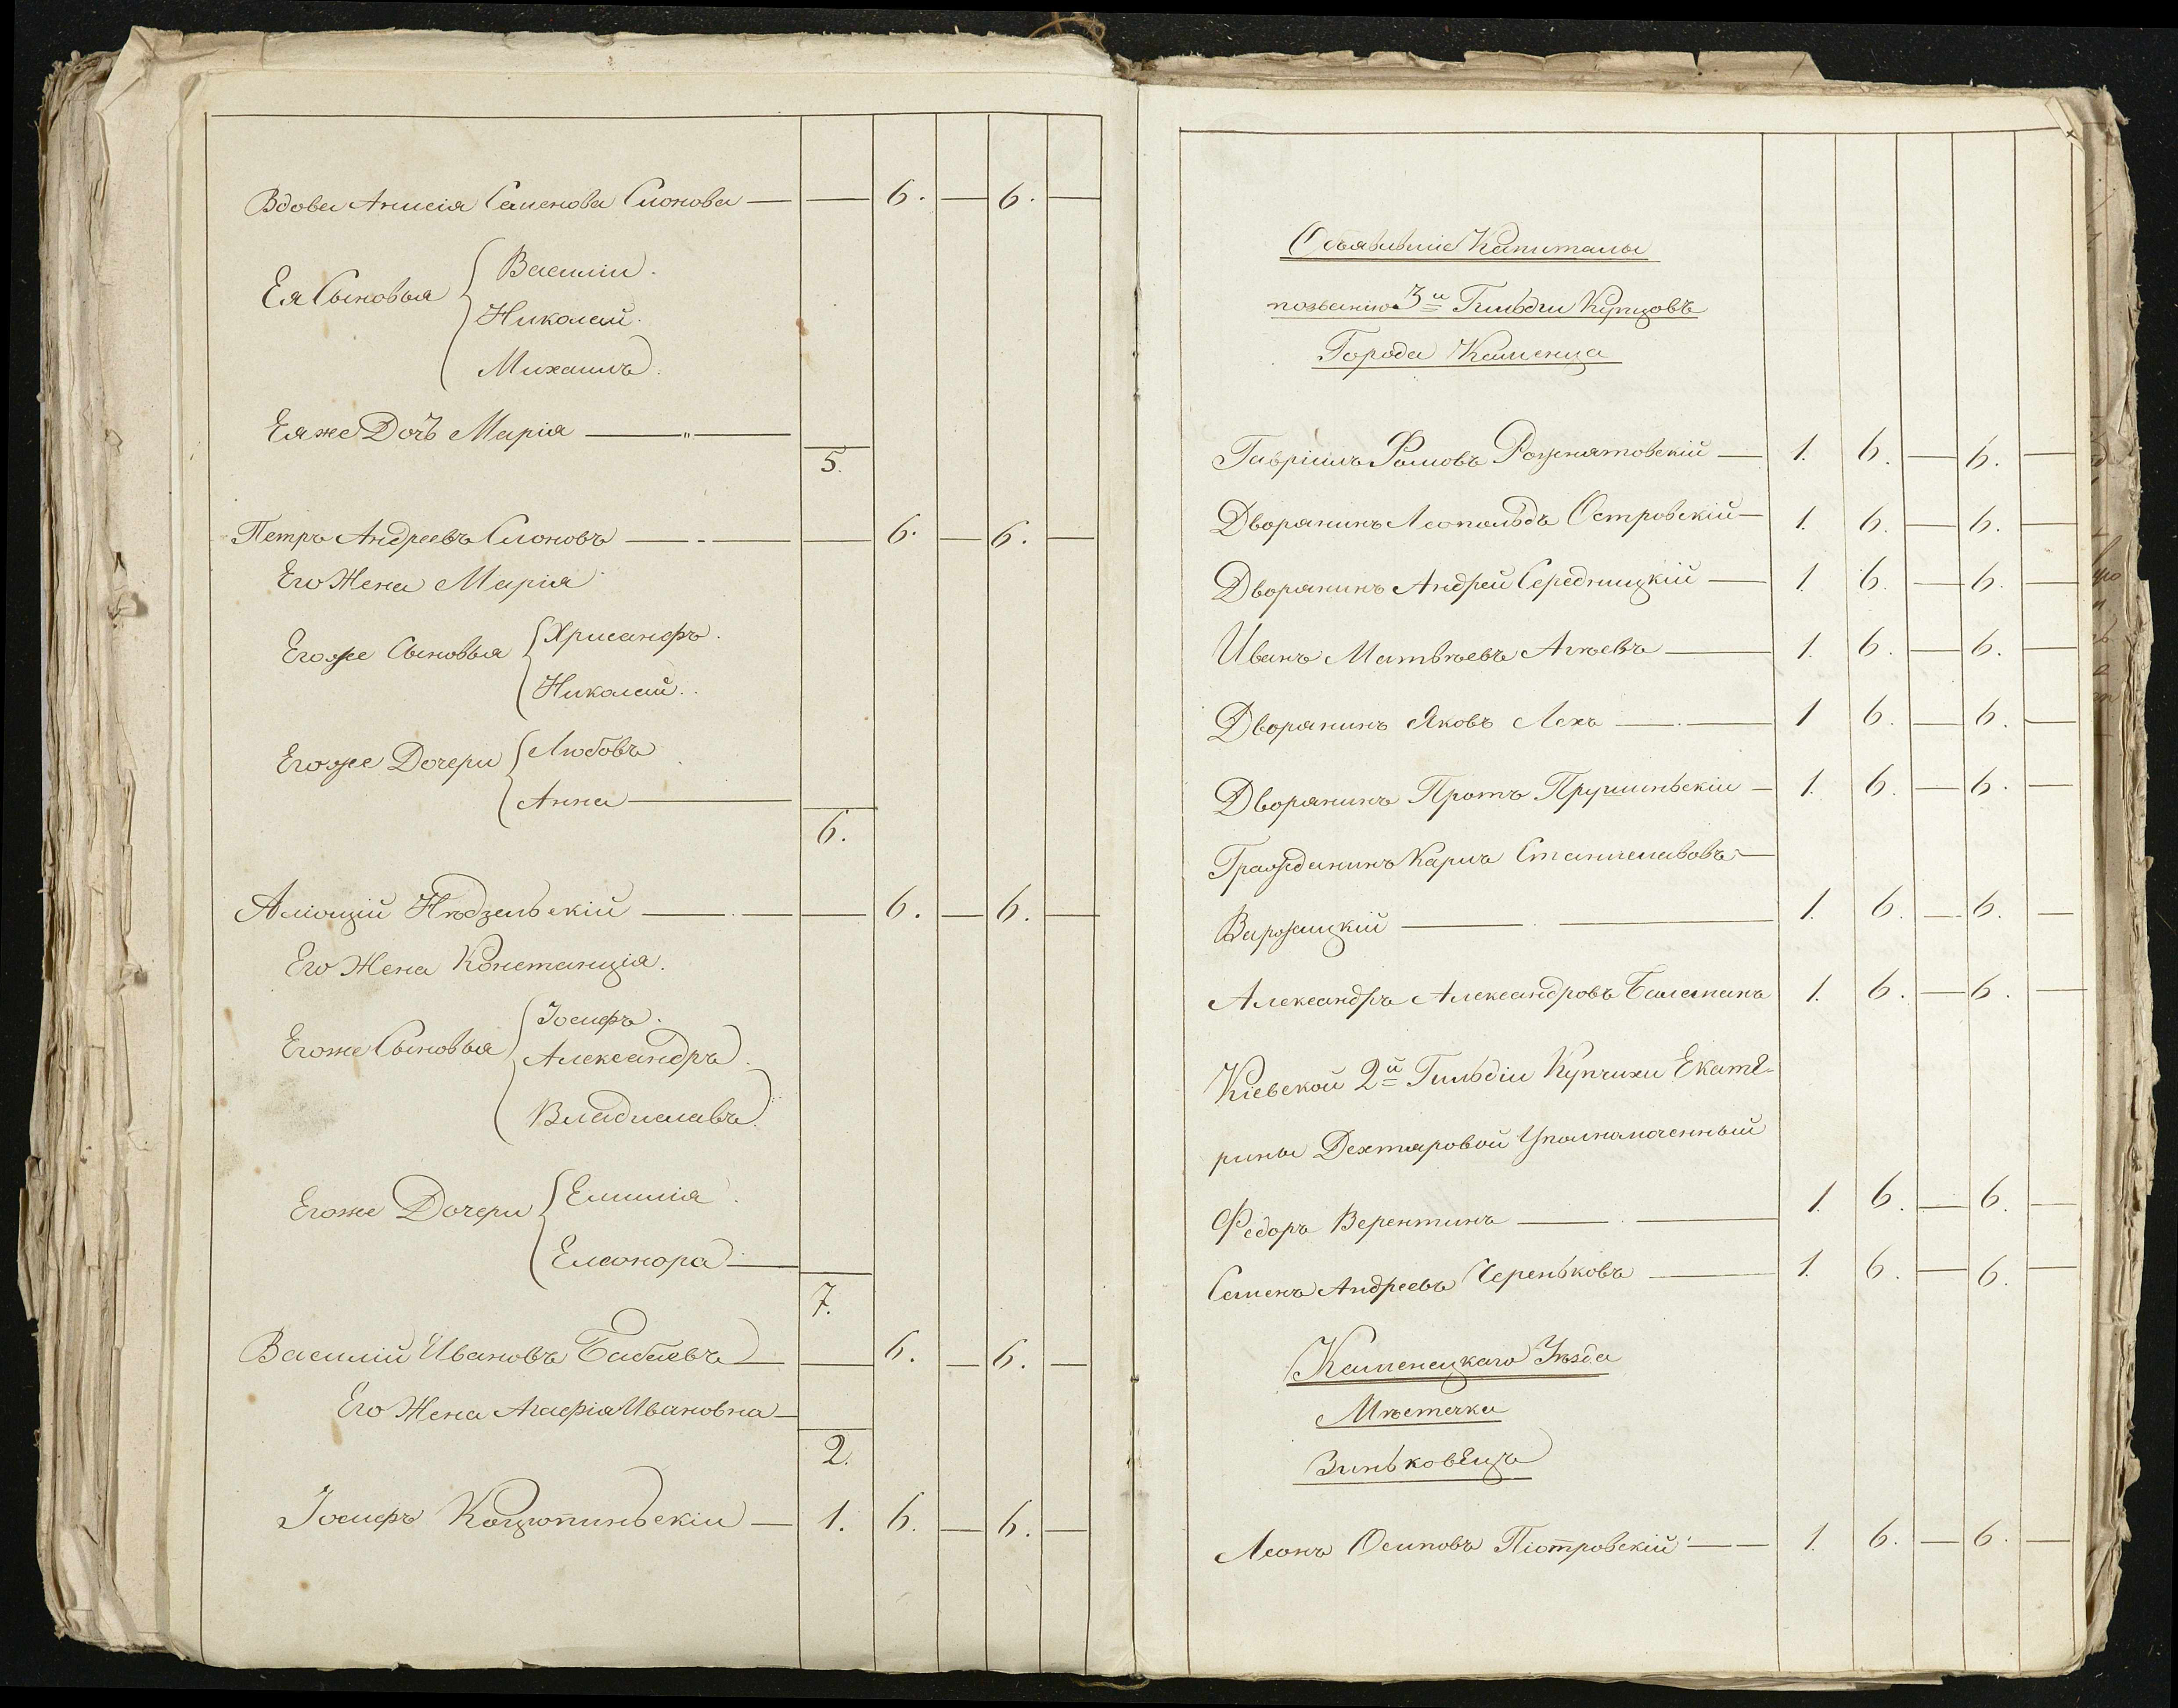 Вдова Анисія Семенова Слонова — — 6. — 6. —
Ея Сыновья { Василій.
Николай.
Михаилъ.
Ея же Дочь Марія — " —
5.
Петръ Андреевъ Слоновъ — - — — 6. — 6. —
Его Жена Марія
Егоже Сыновья { Хрисанфъ.
Николай.
Егоже Дочери { Любовь
Анна —
6.
Алоизій Нѣдзельскій — — 6. — 6. —
Его Жена Констанція.
Егоже Сыновья { Іосифъ.
Александръ.
Владиславъ.
Егоже Дочери { Емилія.
Елеонора —
7.
Василій Ивановъ Бабаевъ — — 6. — 6. —
Его Жена Агафія Ивановна —
2.
Іосифъ — 1. 6. — 6. —
Объявившіе Капиталы
позванію 3й Гильдіи Купцовъ
Города Каменца
Гавріилъ Фомовъ Рожнятовскій — 1. 6. — 6. —
Дворянинъ Леопольдъ Островскій — 1. 6. — 6. —
Дворянинъ Андрей Середницкій — 1. 6. — 6. —
Иванъ Матвѣевъ Агѣевъ — 1. 6. — 6. —
Дворянинъ Яковъ Лехъ — 1 6. — 6. —
Дворянинъ Протъ Прушиньскій — 1. 6. — 6. —
Гражданинъ Карлъ Станиславовъ —
Варжицкій — 1. 6. — 6. —
Александръ Александровъ Балабанъ 1. 6. — 6. —
Кіевской 2й Гильдіи Купчихи Екате-
рины Дехтяровой Уполномоченный
Федоръ Верентинъ — 1. 6. — 6. —
Семенъ Андреевъ Череньковъ — 1. 6. — 6. —
Каменецкаго Уѣзда
Мѣстечка
Виньковецъ
Леонъ Осиповъ Піотровскій — 1. 6. — 6. —